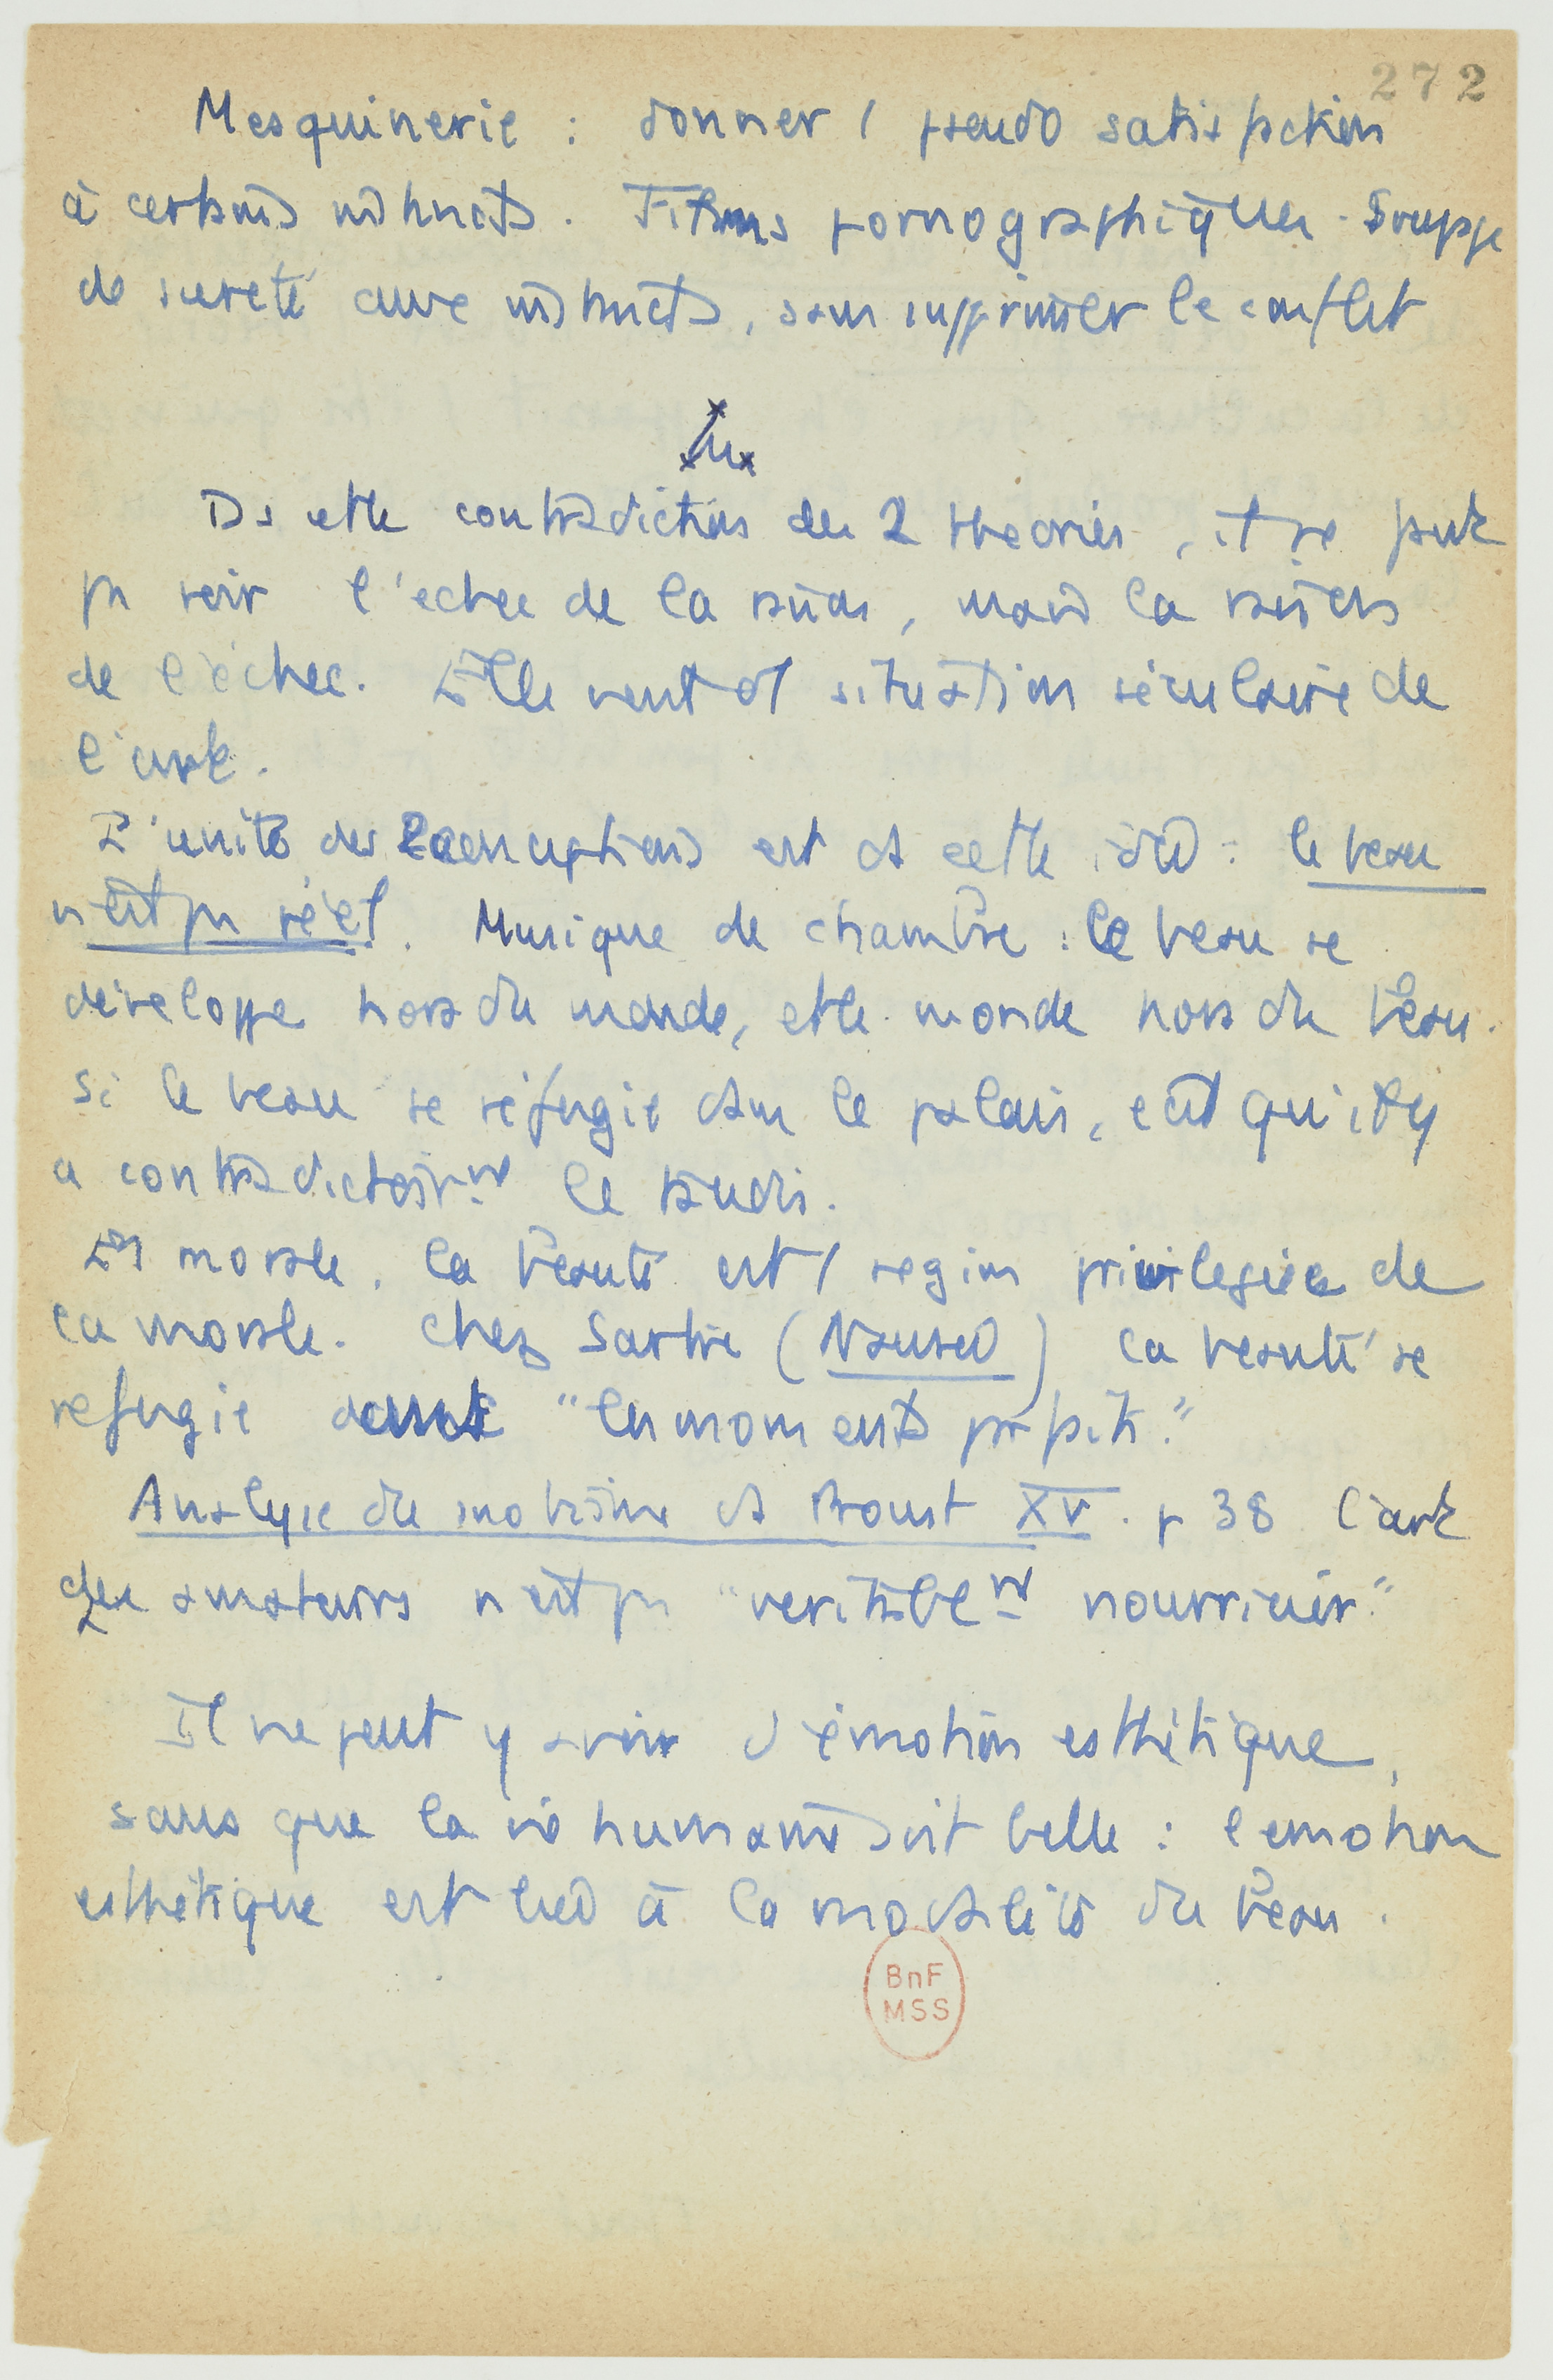 272
Mesquinerie : donner 1 pseudo satisfaction
à certains instincts. Films pornographiques. Soupape
de sureté aux instincts, sans supprimer le conflit
Ds cette contradiction des 2 theories, il ne faut
pas voir l'échec de la raison, mais la raison
de l'échec. Elle vient de situation séculaire de
l'art.
L'unité des 2 conceptions est ds cette idée : le beau
n'est pas réel. Musique de chambre : le beau se
développe hors du monde, et le monde hors du beau.
Si le beau se réfugie dans le palais, c'est qu'il y
a contradictoirmt le taudis.
En morale, la beauté est 1 region privilegiée de
la morale. Chez Sartre (Nausée) la beauté se
refugie dans "les moments parfaits."
Analyse du snobisme ds Proust XV. p 38 l'art
des amateurs n'est pas "veritablemt nourricier"
Il ne peut y avoir d'émotion esthétique,
sans que la vie humaine soit belle : l'emotion
esthétique est liée à la modalité du beau.
BnF
MSS